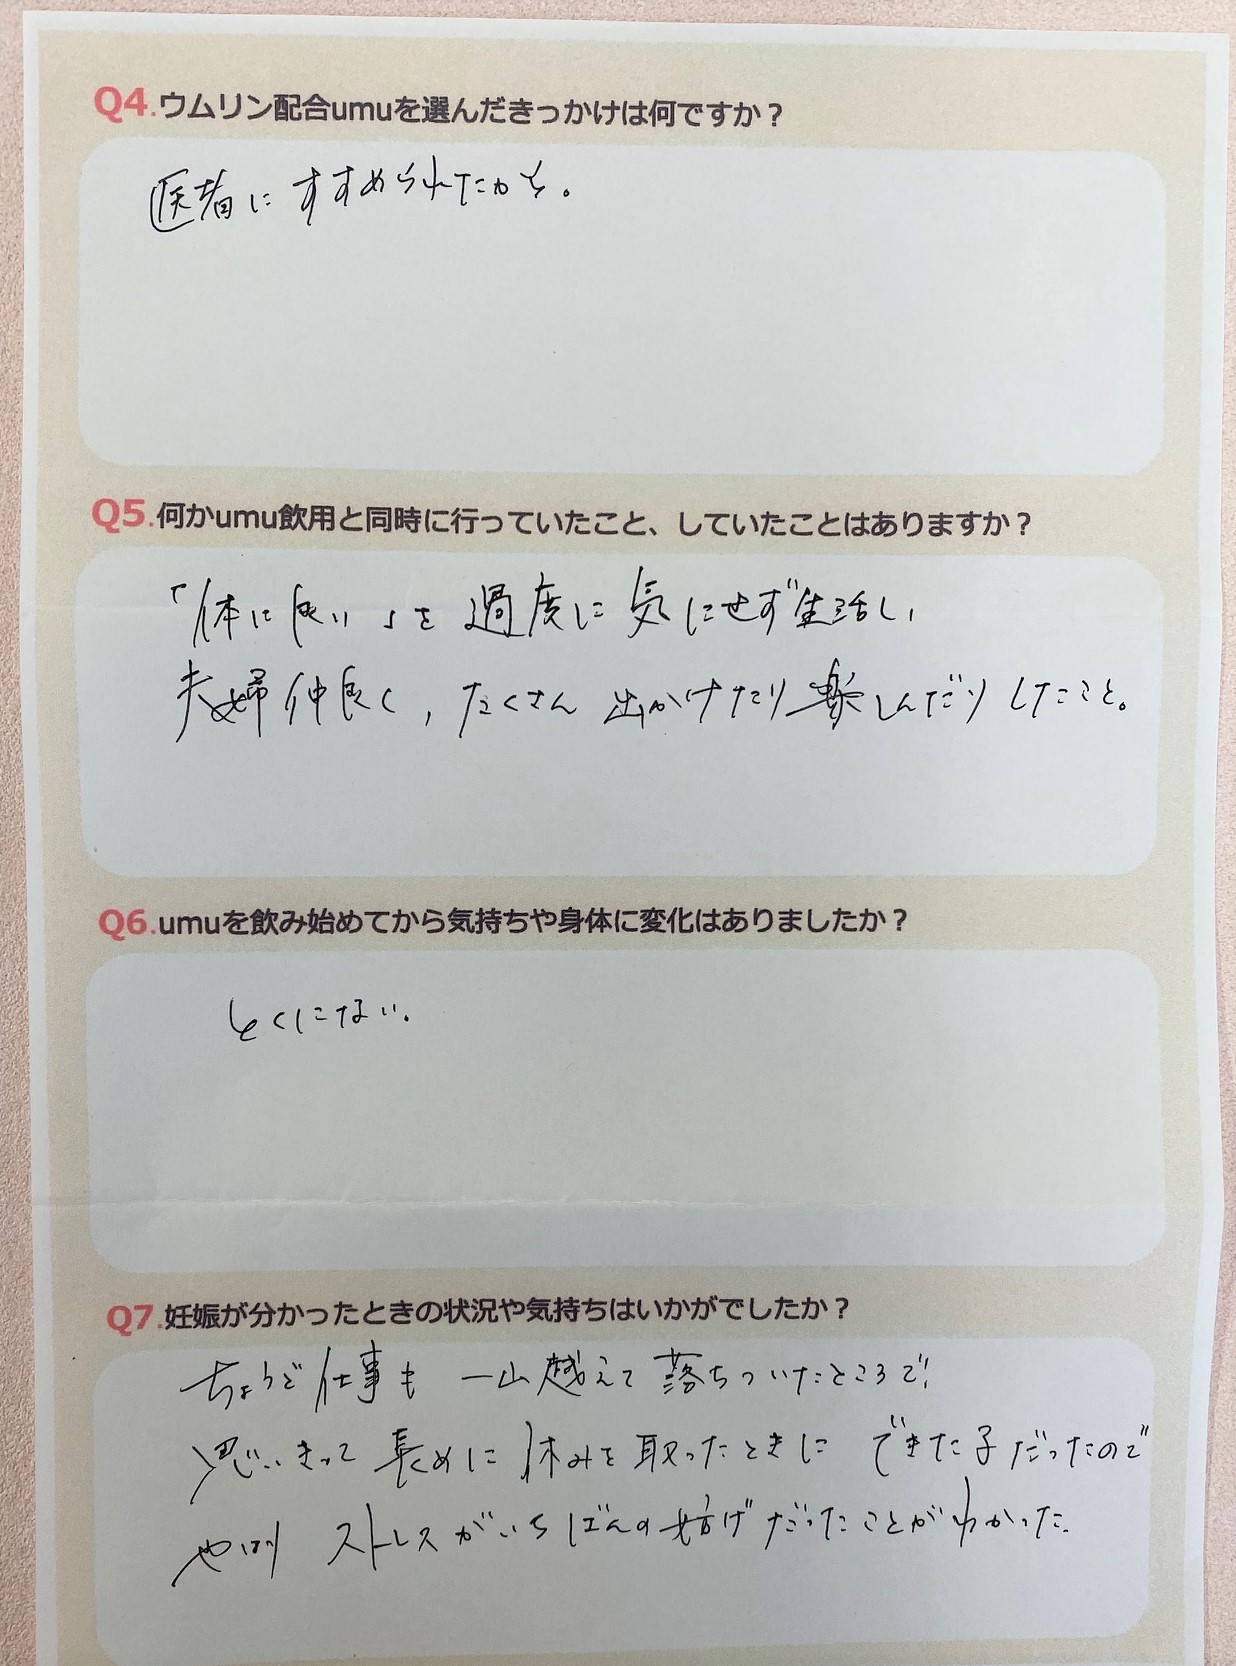 Q4.ウムリン配合umuを選んだきっかけは何ですか？
医者にすすめられたから。
Q5.何かumu飲用と同時に行っていたこと、していたことはありますか？
「体に良い」を過度に気にせず生活し、
夫婦仲良く、たくさん出かけたり楽しんだりしたこと。
Q6.umuを飲み始めてから気持ちや身体に変化はありましたか？
とくにない。
Q7.妊娠が分かったときの状況や気持ちはいかがでしたか？
ちょうど仕事も一山越えて落ちついたところで！
思いきって長めに休みを取ったときにできた子だったので
やはりストレスがいちばんの妨げだったことがわかった。